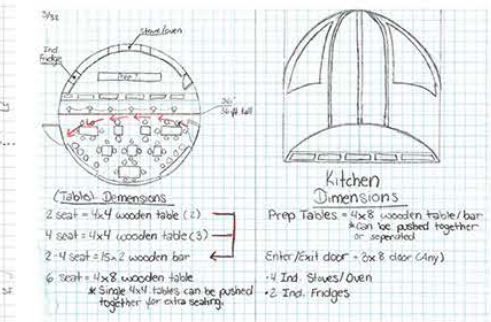 Stove/oven
Ind.
Fridge
Prep T
36'
(Table) Demensions
2 seat = 4x4 wooden table (2)
4 seat = 4x4 wooden table (3)
2-4 seat = 15x2 wooden bar
6 seat = 4x8 wooden table
* Single 4x4 tables can be pushed
together for extra seating.
Kitchen
Dimensions
Prep Tables = 4x8 wooden table/bar
* Can be pushed together
or seperated
Enter/Exit door = 3x8 door (Any)
• 4 Ind. Stoves/Oven
• 2 Ind. Fridges